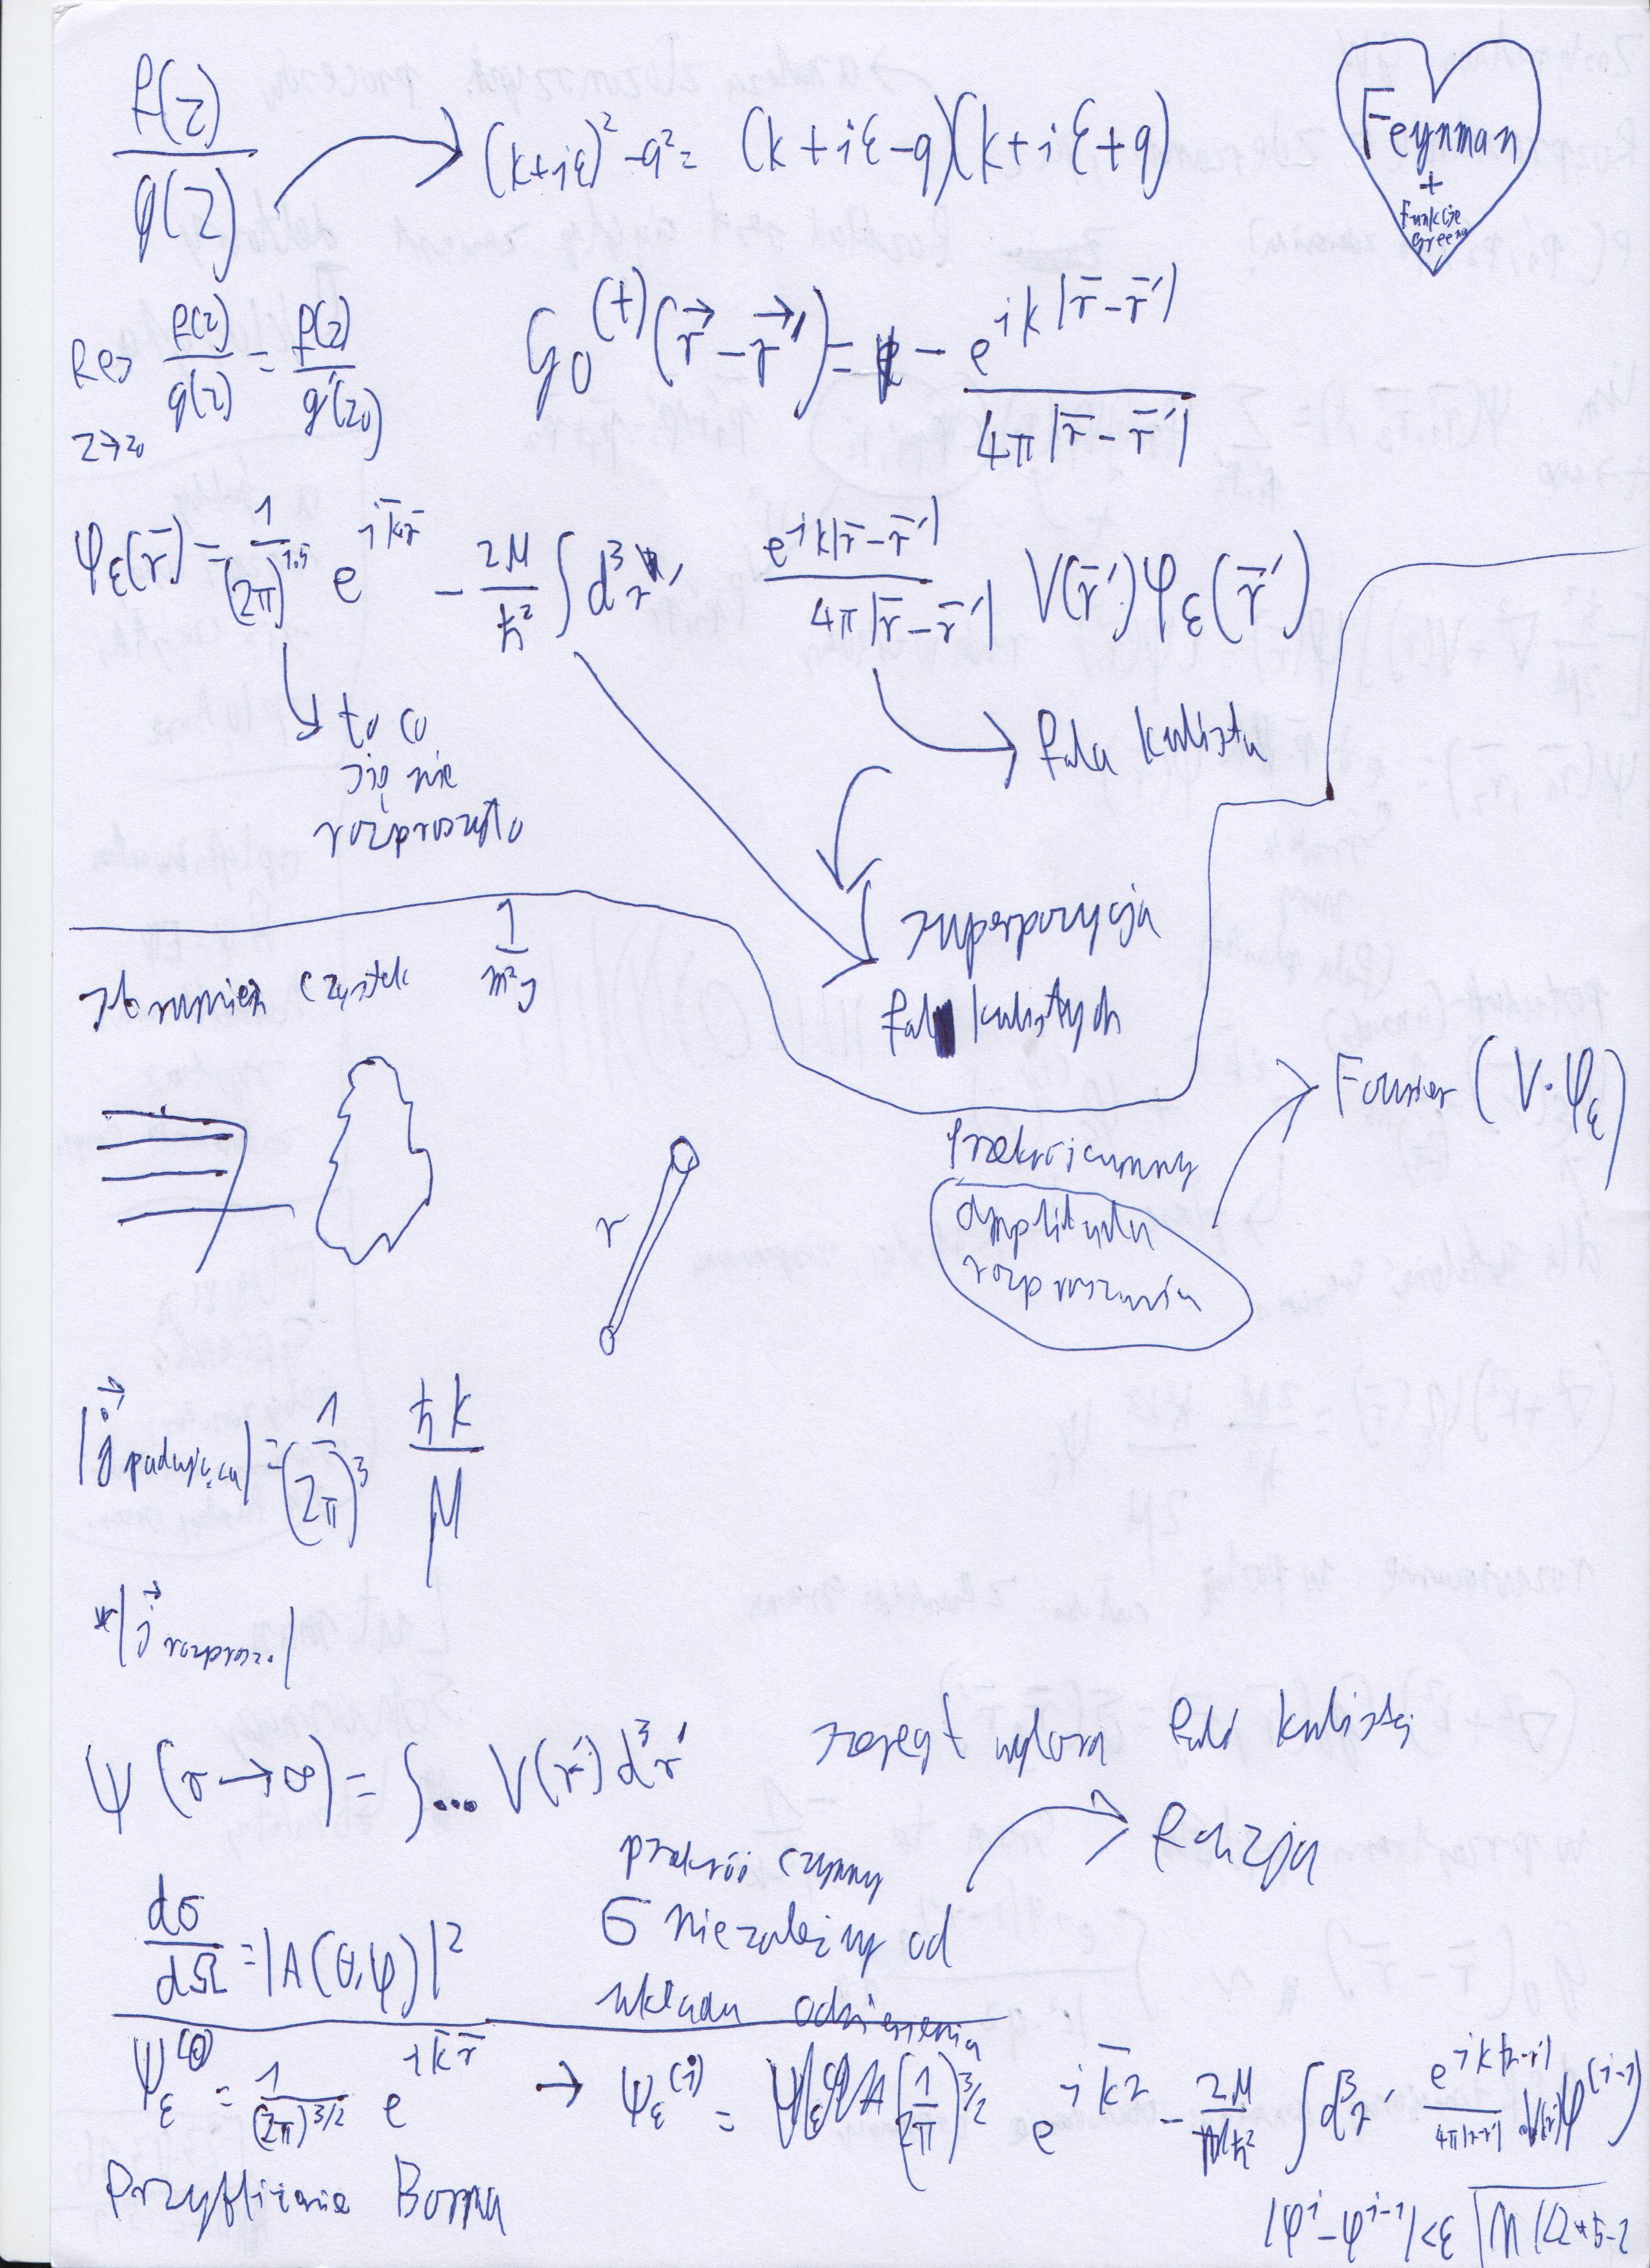 f(z)
g(z)
(k+iε)²-q²= (k+iε-q)(k+iε+q)
Feynman
+
funkcje
Greena
Res f(z)/g(z) = f(z)/g'(z₀)
z→z₀
G₀⁽⁺⁾(r⃗-r⃗')= - e^{ik|r̄-r̄'|} / 4π|r̄-r̄'|
φ_ε(r̄)= 1/(2π)^{1.5} e^{ik̄r̄} - 2M/ħ² ∫d³r' e^{ik|r̄-r̄'|}/4π|r̄-r̄'| V(r̄')φ_ε(r̄')
to co
się nie
rozproszyło
fala kulista
superpozycja
fal kulistych
strumień cząstek 1/m²s
Fourier (V·φ_ε)
Przekrój czynny
amplituda
rozproszenia
r
|j⃗ padająca|= 1/(2π)³ ħk/M
|j⃗ rozprosz.|
ψ(r→∞)= ∫... V(r')d³r'
fali kulistej
przekrój czynny
σ niezależny od
układu odniesienia
dσ/dΩ=|A(θ,φ)|²
ψ_ε⁽⁰⁾ = 1/(2π)^{3/2} e^{ik̄r̄} → ψ_ε⁽ʲ⁾ = (1/2π)^{3/2} e^{ik̄r} - 2M/ħ² ∫d³r' e^{ik|r-r'|}/4π|r-r'| V(r')φ^{(j-1)}
Przybliżenie Borna
|φ^j-φ^{j-1}|<ε